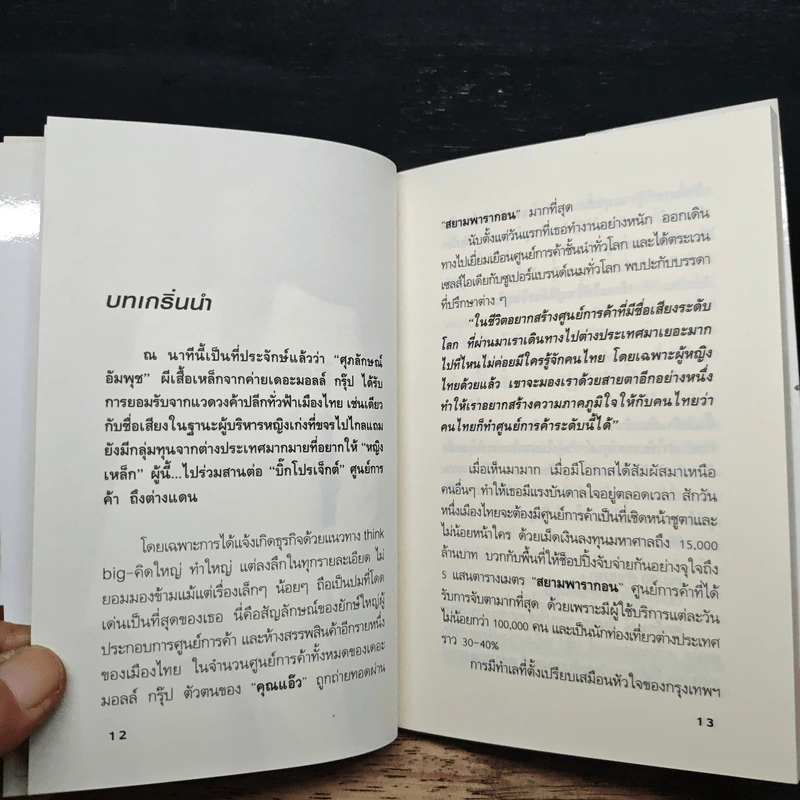 บทเกริ่นนำ
ณ นาทีนี้เป็นที่ประจักษ์แล้วว่า “ศุภลักษณ์
อัมพุช” ผีเสื้อเหล็กจากค่ายเดอะมอลล์ กรุ๊ป ได้รับ
การยอมรับจากแวดวงค้าปลีกทั่วฟ้าเมืองไทย เช่นเดียว
กับชื่อเสียงในฐานะผู้บริหารหญิงเก่งที่ขจรไปไกลแถม
ยังมีกลุ่มทุนจากต่างประเทศมากมายที่อยากให้ “หญิง
เหล็ก” ผู้นี้...ไปร่วมสานต่อ “บิ๊กโปรเจ็กต์” ศูนย์การ
ค้า ถึงต่างแดน
โดยเฉพาะการได้แจ้งเกิดธุรกิจด้วยแนวทาง think
big-คิดใหญ่ ทำใหญ่ แต่ลงลึกในทุกรายละเอียด ไม่
ยอมมองข้ามแม้แต่เรื่องเล็กๆ น้อยๆ ถือเป็นปมที่โดด
เด่นเป็นที่สุดของเธอ นี่คือสัญลักษณ์ของยักษ์ใหญ่ผู้
ประกอบการศูนย์การค้า และห้างสรรพสินค้าอีกรายหนึ่ง
ของเมืองไทย ในจำนวนศูนย์การค้าทั้งหมดของเดอะ
มอลล์ กรุ๊ป ตัวตนของ “คุณแอ๊ว” ถูกถ่ายทอดผ่าน
12
“สยามพารากอน” มากที่สุด
นับตั้งแต่วันแรกที่เธอทำงานอย่างหนัก ออกเดิน
ทางไปเยี่ยมเยือนศูนย์การค้าชั้นนำทั่วโลก และได้ตระเวน
เซลส์ไอเดียกับซูเปอร์แบรนด์เนมทั่วโลก พบปะกับบรรดา
ที่ปรึกษาต่าง ๆ
“ในชีวิตอยากสร้างศูนย์การค้าที่มีชื่อเสียงระดับ
โลก ที่ผ่านมาเราเดินทางไปต่างประเทศมาเยอะมาก
ไปที่ไหนไม่ค่อยมีใครรู้จักคนไทย โดยเฉพาะผู้หญิง
ไทยด้วยแล้ว เขาจะมองเราด้วยสายตาอีกอย่างหนึ่ง
ทำให้เราอยากสร้างความภาคภูมิใจ ให้กับคนไทยว่า
คนไทยก็ทำศูนย์การค้าระดับนี้ได้”
เมื่อเห็นมามาก เมื่อมีโอกาสได้สัมผัสมาเหนือ
คนอื่นๆ ทำให้เธอมีแรงบันดาลใจอยู่ตลอดเวลา สักวัน
หนึ่งเมืองไทยจะต้องมีศูนย์การค้าเป็นที่เชิดหน้าชูตาและ
ไม่น้อยหน้าใคร ด้วยเม็ดเงินลงทุนมหาศาลถึง 15,000
ล้านบาท บวกกับพื้นที่ให้ช็อปปิ้งจับจ่ายกันอย่างจุใจถึง
5 แสนตารางเมตร “สยามพารากอน” ศูนย์การค้าที่ได้
รับการจับตามากที่สุด ด้วยเพราะมีผู้ใช้บริการแต่ละวัน
ไม่น้อยกว่า 100,000 คน และเป็นนักท่องเที่ยวต่างประเทศ
ราว 30-40%
การมีทำเลที่ตั้งเปรียบเสมือนหัวใจของกรุงเทพฯ
13